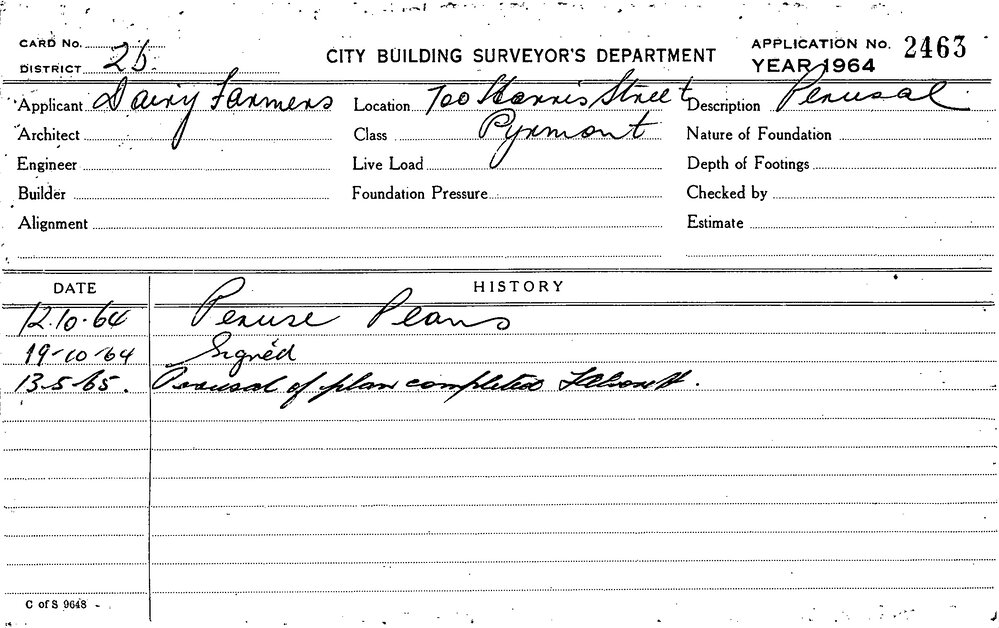 CARD No.
DISTRICT 2b.
CITY BUILDING SURVEYOR'S DEPARTMENT
APPLICATION No. 2463
YEAR 1964
Applicant Dairy Farmers Location 700 Harris Street Description Perusal
Architect Class Pyrmont Nature of Foundation
Engineer Live Load Depth of Footings
Builder Foundation Pressure Checked by
Alignment Estimate
DATE HISTORY
12.10.64 Peruse Plans
19-10-64 Signed
13.5.65. Perusal of plan completed
C of S 9648